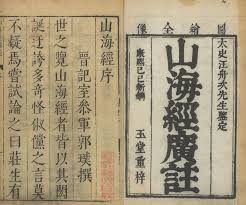 圖繪全像
太史汪舟次先生鑒定
山海經廣註
玉堂重梓
山海經序
晉記室參軍郭璞撰
世之覽山海經者皆以其閎
誕迂誇多奇怪俶儻之言莫
不疑焉嘗試論之曰莊生有